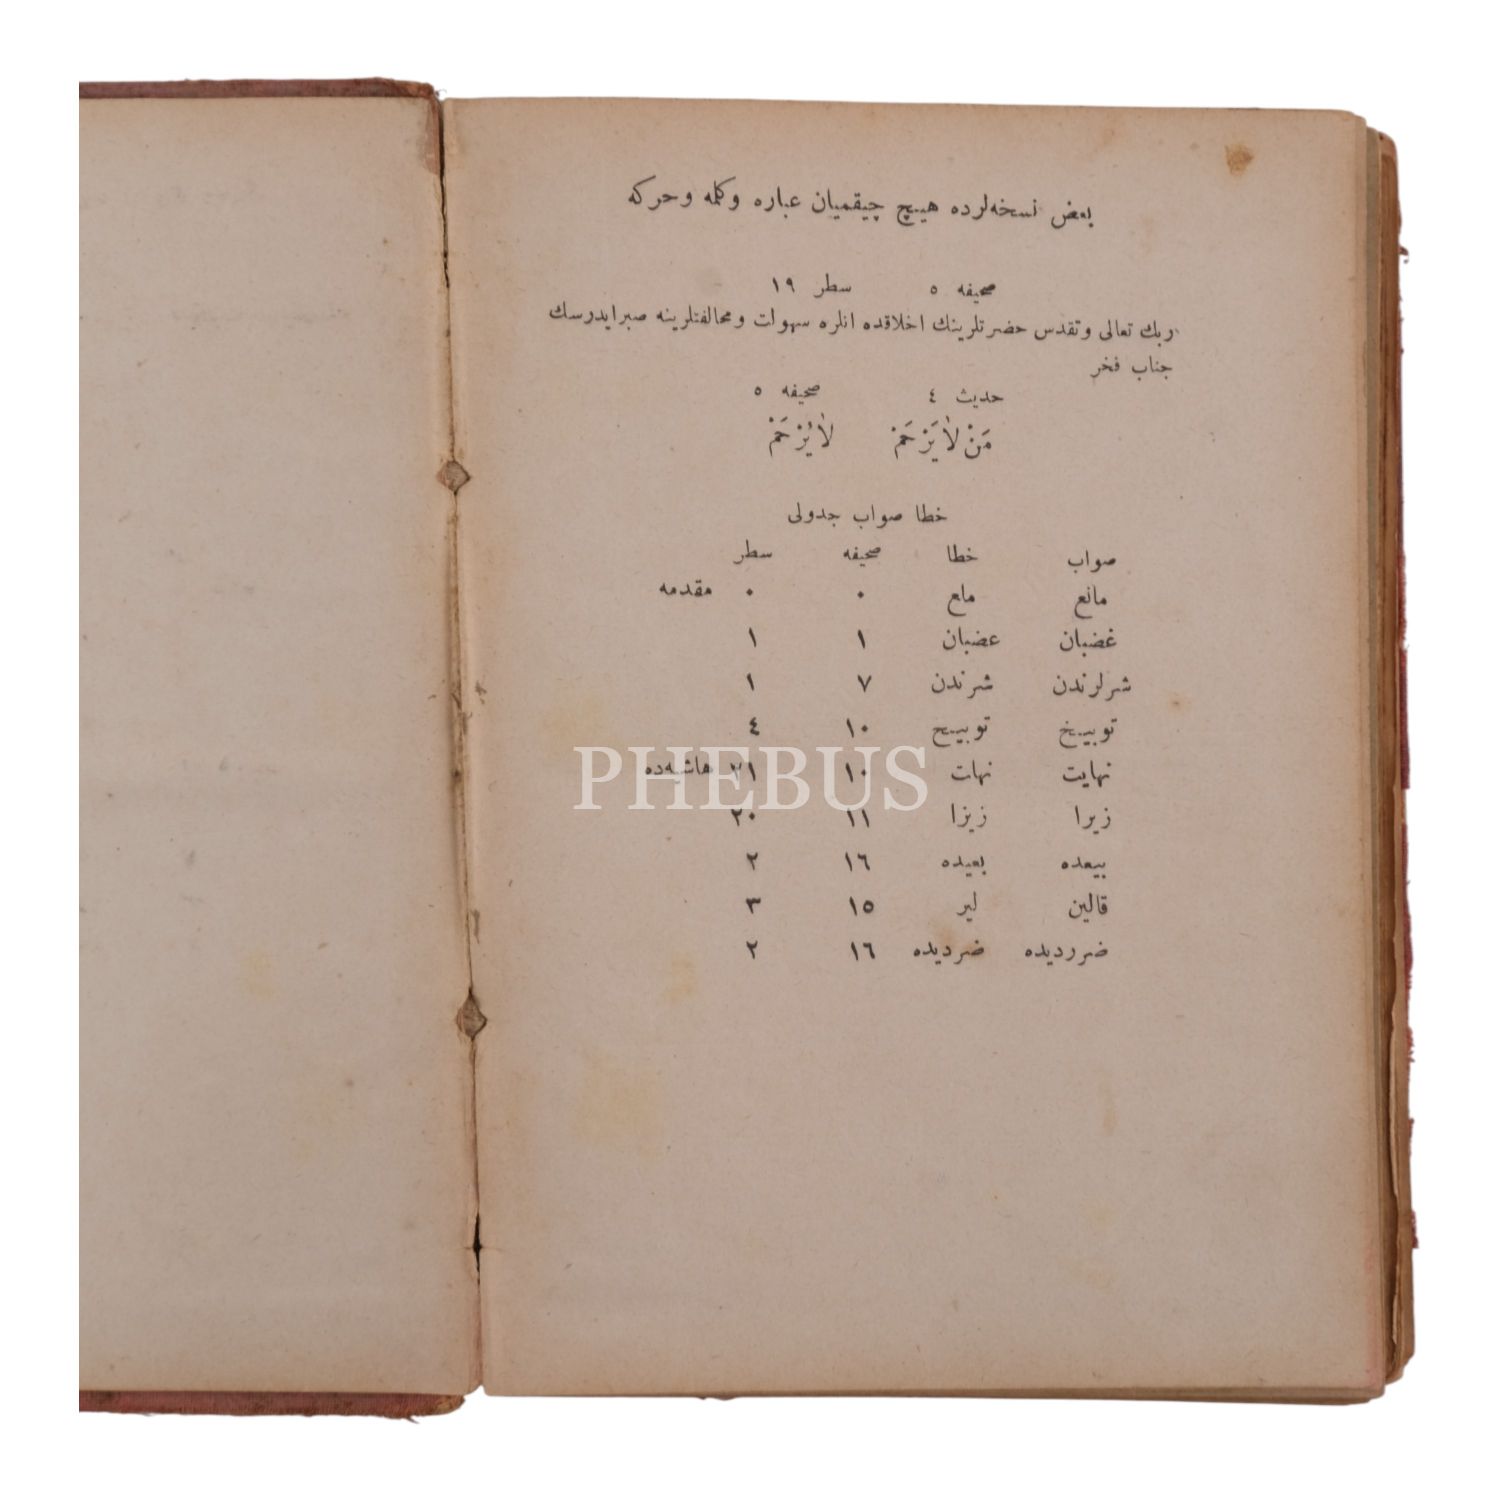 بعض نسخه‌لرده هیچ چیقمیان عباره و کلمه و حرکه
صحیفه ٥ سطر ١٩
ربك تعالی و تقدس حضرتلرینك اخلاقده انلره سهولت و مخالفتلرینه صبر ایدرسك
جناب فخر
حدیث ٤ صحیفه ٥
مَنْ لاٰ یَرْحَمْ لاٰ یُرْحَمْ
خطا صواب جدولی
صواب خطا صحیفه سطر
مانع ماع ٠ ٠ مقدمه
غضبان عضبان ١ ١
شرلرندن شرندن ٧ ١
توبیخ توبیح ١٠ ٤
نهایت نهات ١٠ ٢١ هاشیه‌ده
زیرا زیزا ١١ ٢٠
بیعده بعیده ١٦ ٢
قالین لیر ١٥ ٣
ضرردیده ضردیده ١٦ ٢
PHEBUS